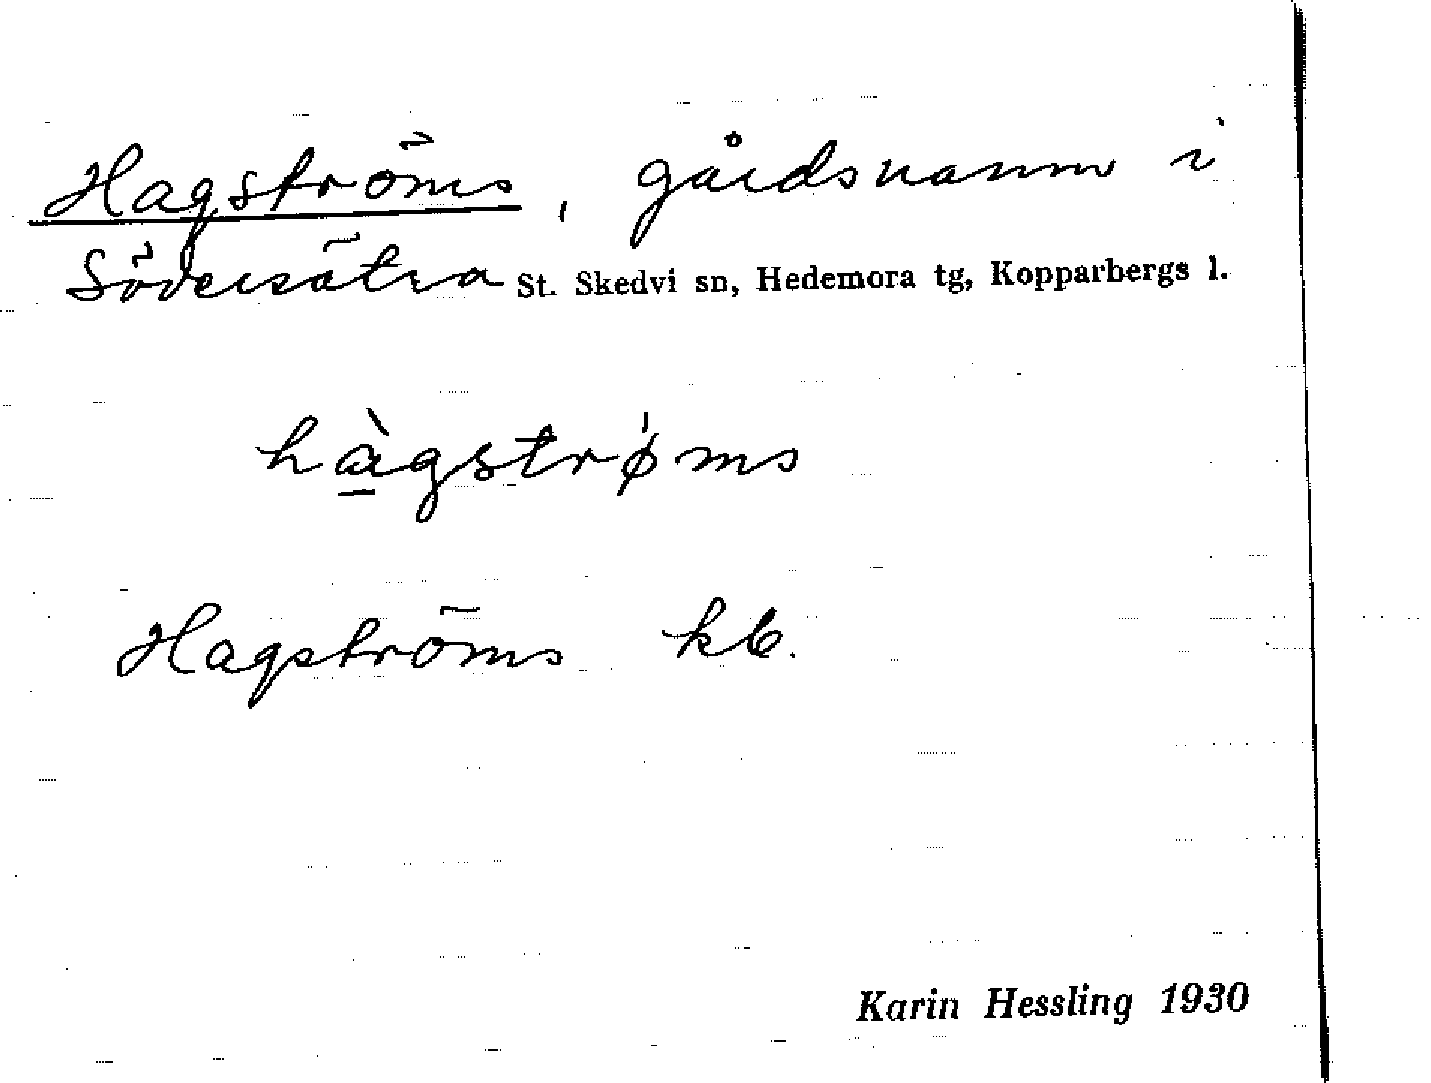 Hagströms, gårdsnamn i
Södersätra St. Skedvi sn, Hedemora tg, Kopparbergs l.
hàgstrø̍ms
Hagströms kb.
Karin Hessling 1930